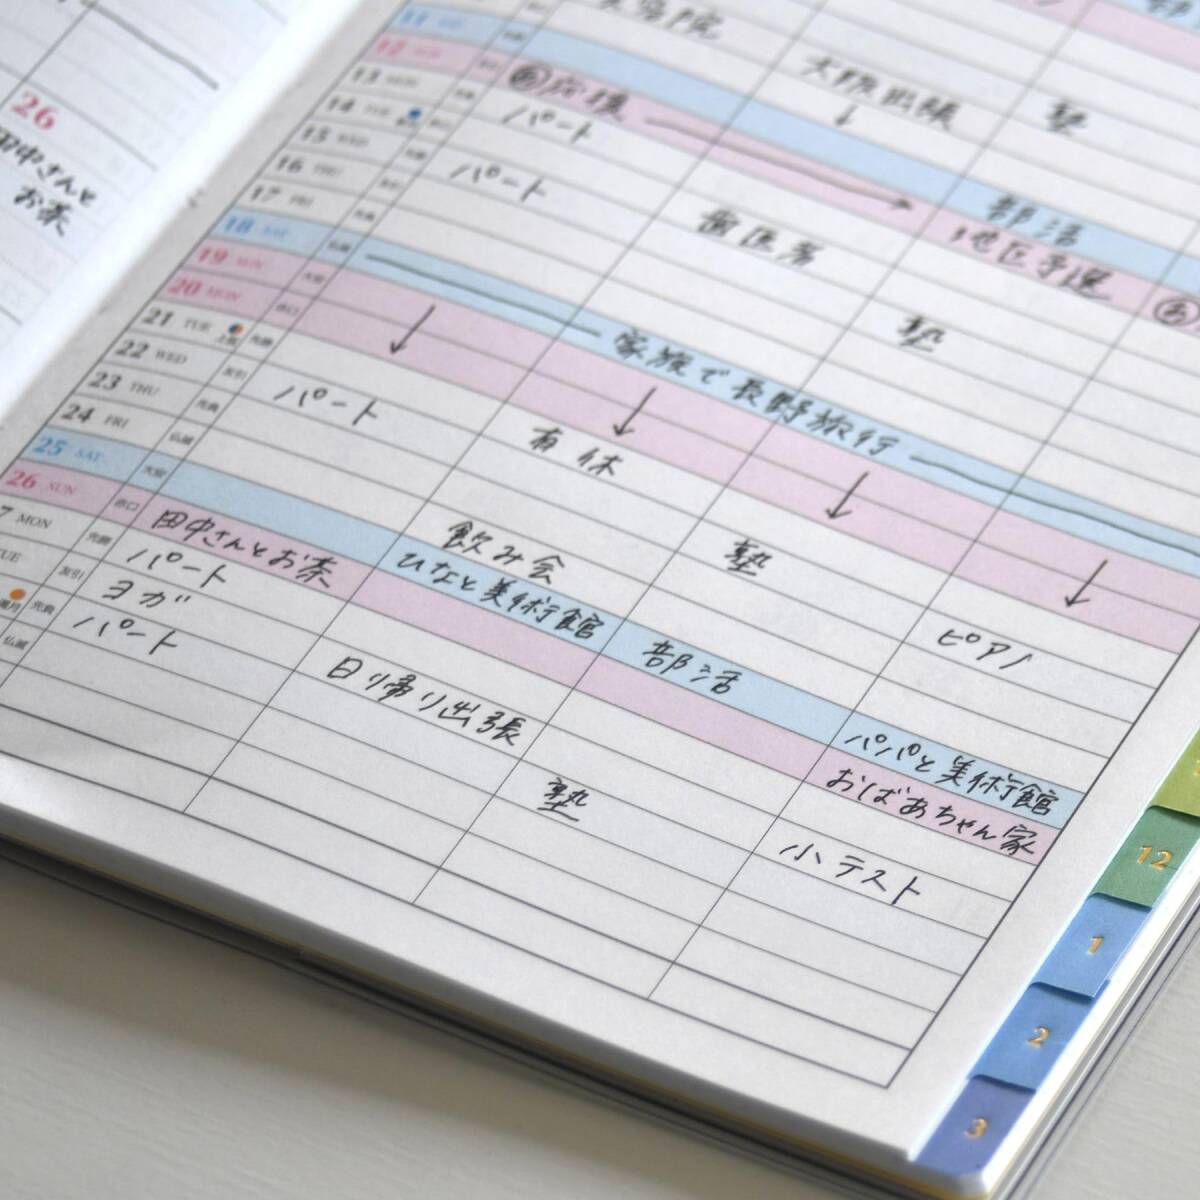 26
田中さんと
お茶
12
13 MON
14 TUE
15 WED
16 THU
17 FRI
18 SAT
19 SUN
20 MON
21 TUE
22 WED
23 THU
24 FRI
25 SAT
26 SUN
7 MON
TUE
満月
上弦
大安
赤口
先勝
友引
先負
仏滅
大安
赤口
先勝
友引
先負
仏滅
大阪出張
塾
あ 応援
パート
パート
歯医者
部活
地区予選
あ
塾
家族で長野旅行
パート
有休
飲み会
塾
ピアノ
田中さんとお茶
ひなと美術館
部活
パパと美術館
おばあちゃん家
パート
ヨガ
パート
日帰り出張
塾
小テスト
12
1
2
3